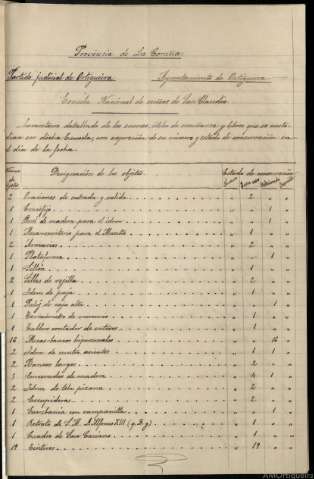 Provincia de La Coruña
Partido judicial de Ortigueira Ayuntamiento de Ortigueira
Escuela Nacional de niños de San Claudio
Inventario detallado de los enseres, útiles de enseñanza y libros que se
dian en dicha Escuela, con expresión de su número y estado de conservación en
el día de la fecha.
Designación de los objetos Estado de conservación
2 Oraciones de entrada y salida 2
1 Crucifijo 1
1 de madera para el idem 1
1 para el Maestro 1
2 Armarios 2
1 Plataforma 1
1 Sillón 1
2 Sillas de rejilla 2
1 Idem de paja 1
1 Reloj de caja alta 1
1 1
1 Tablero contador de 1
16 Mesas-bancos bipersonales 16
2 Idem de asientos 2
2 Bancos largos 2
4 de madera 4
2 Idem de tela pizarra 2
2 Escupideras 2
1 Escribanía con campanilla 1
1 Retrato de S. M. D. Alfonso XIII (q. D. g.) 1
1 Cuadro de San Casiano 1
19 Tinteros 19
AMOrtigueira